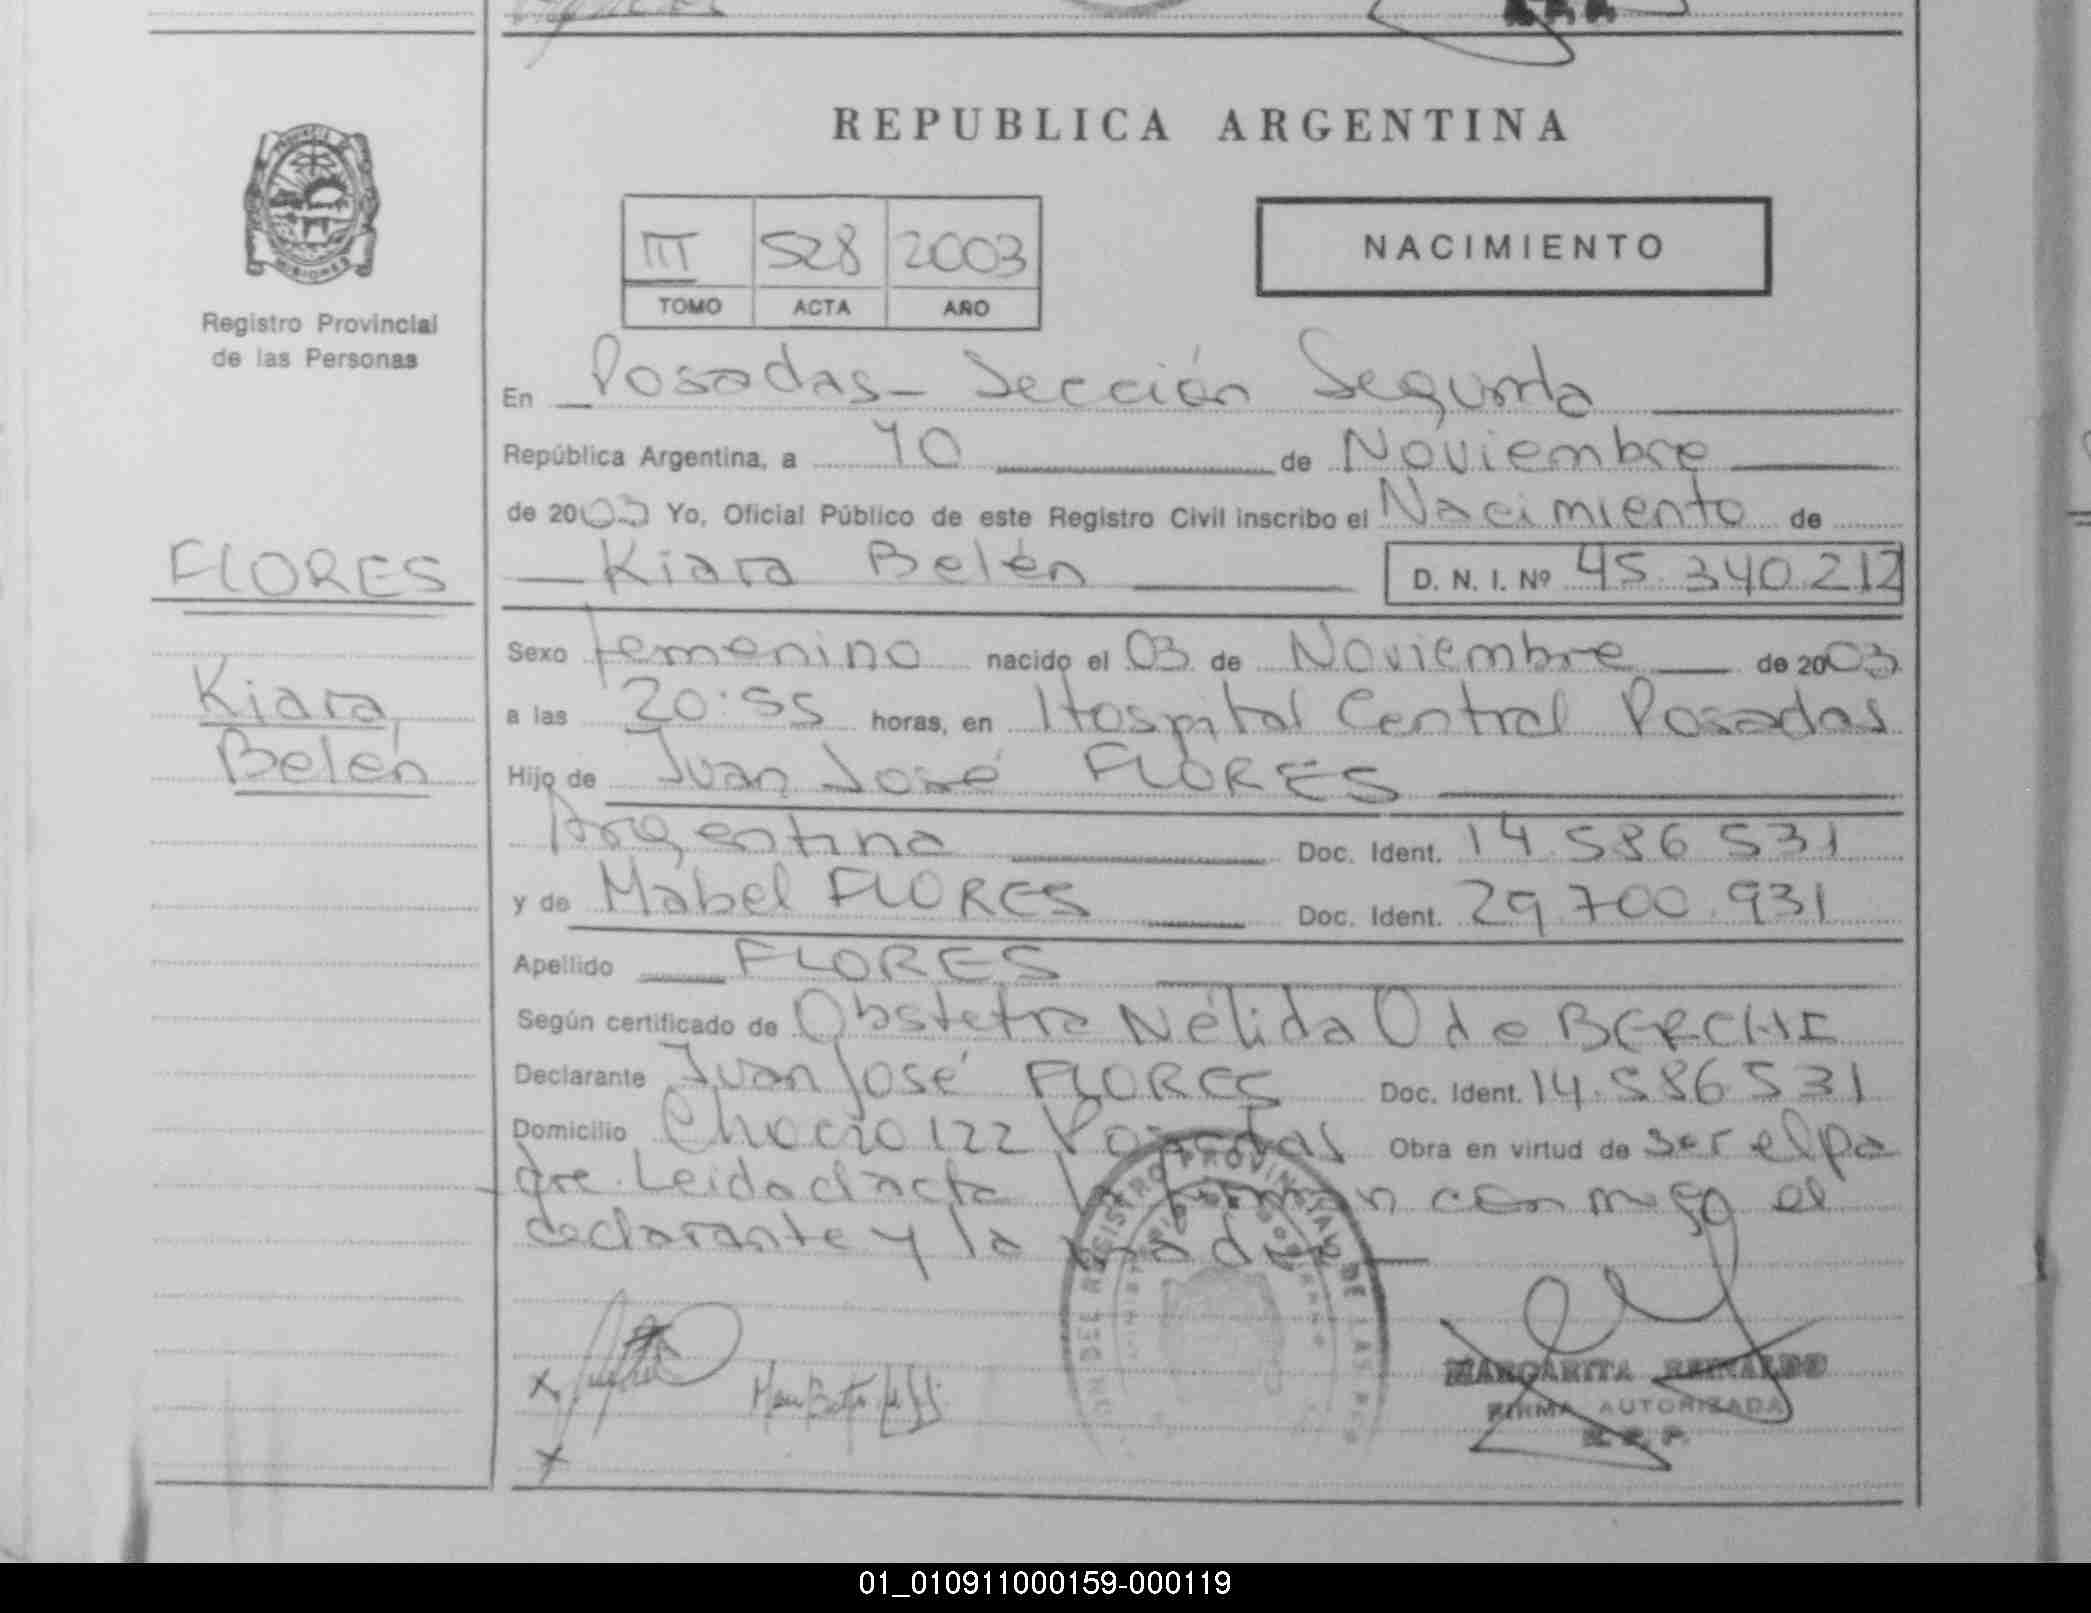 REPUBLICA ARGENTINA
PROVINCIA
MISIONES
Registro Provincial
de las Personas
III 528 2003
TOMO ACTA AÑO
NACIMIENTO
En Posadas - Sección Segunda
República Argentina, a 10 de Noviembre
de 2003 Yo, Oficial Público de este Registro Civil inscribo el Nacimiento de
FLORES
Kiara Belén D. N. I. Nº 45.340.212
Sexo femenino nacido el 03 de Noviembre de 2003
Kiara,
Belén
a las 20:55 horas, en Hospital Central Posadas
Hijo de Juan José FLORES
Argentina Doc. Ident. 14.586.531
y de Mabel FLORES Doc. Ident. 29.700.931
Apellido FLORES
Según certificado de Obstetra Nélida O de BERCHE
Declarante Juan José FLORES Doc. Ident. 14.586.531
Domicilio 122 Posadas Obra en virtud de ser el pa
dre. Leida el acta la firman conmigo el
declarante y la madre
REGISTRO PROVINCIAL DE LAS
MARGARITA
FIRMA AUTORIZADA
R. P. P.
01_010911000159-000119